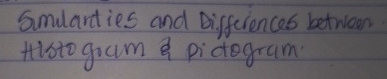 Similarities and Differences between
Histogram & Pictogram.